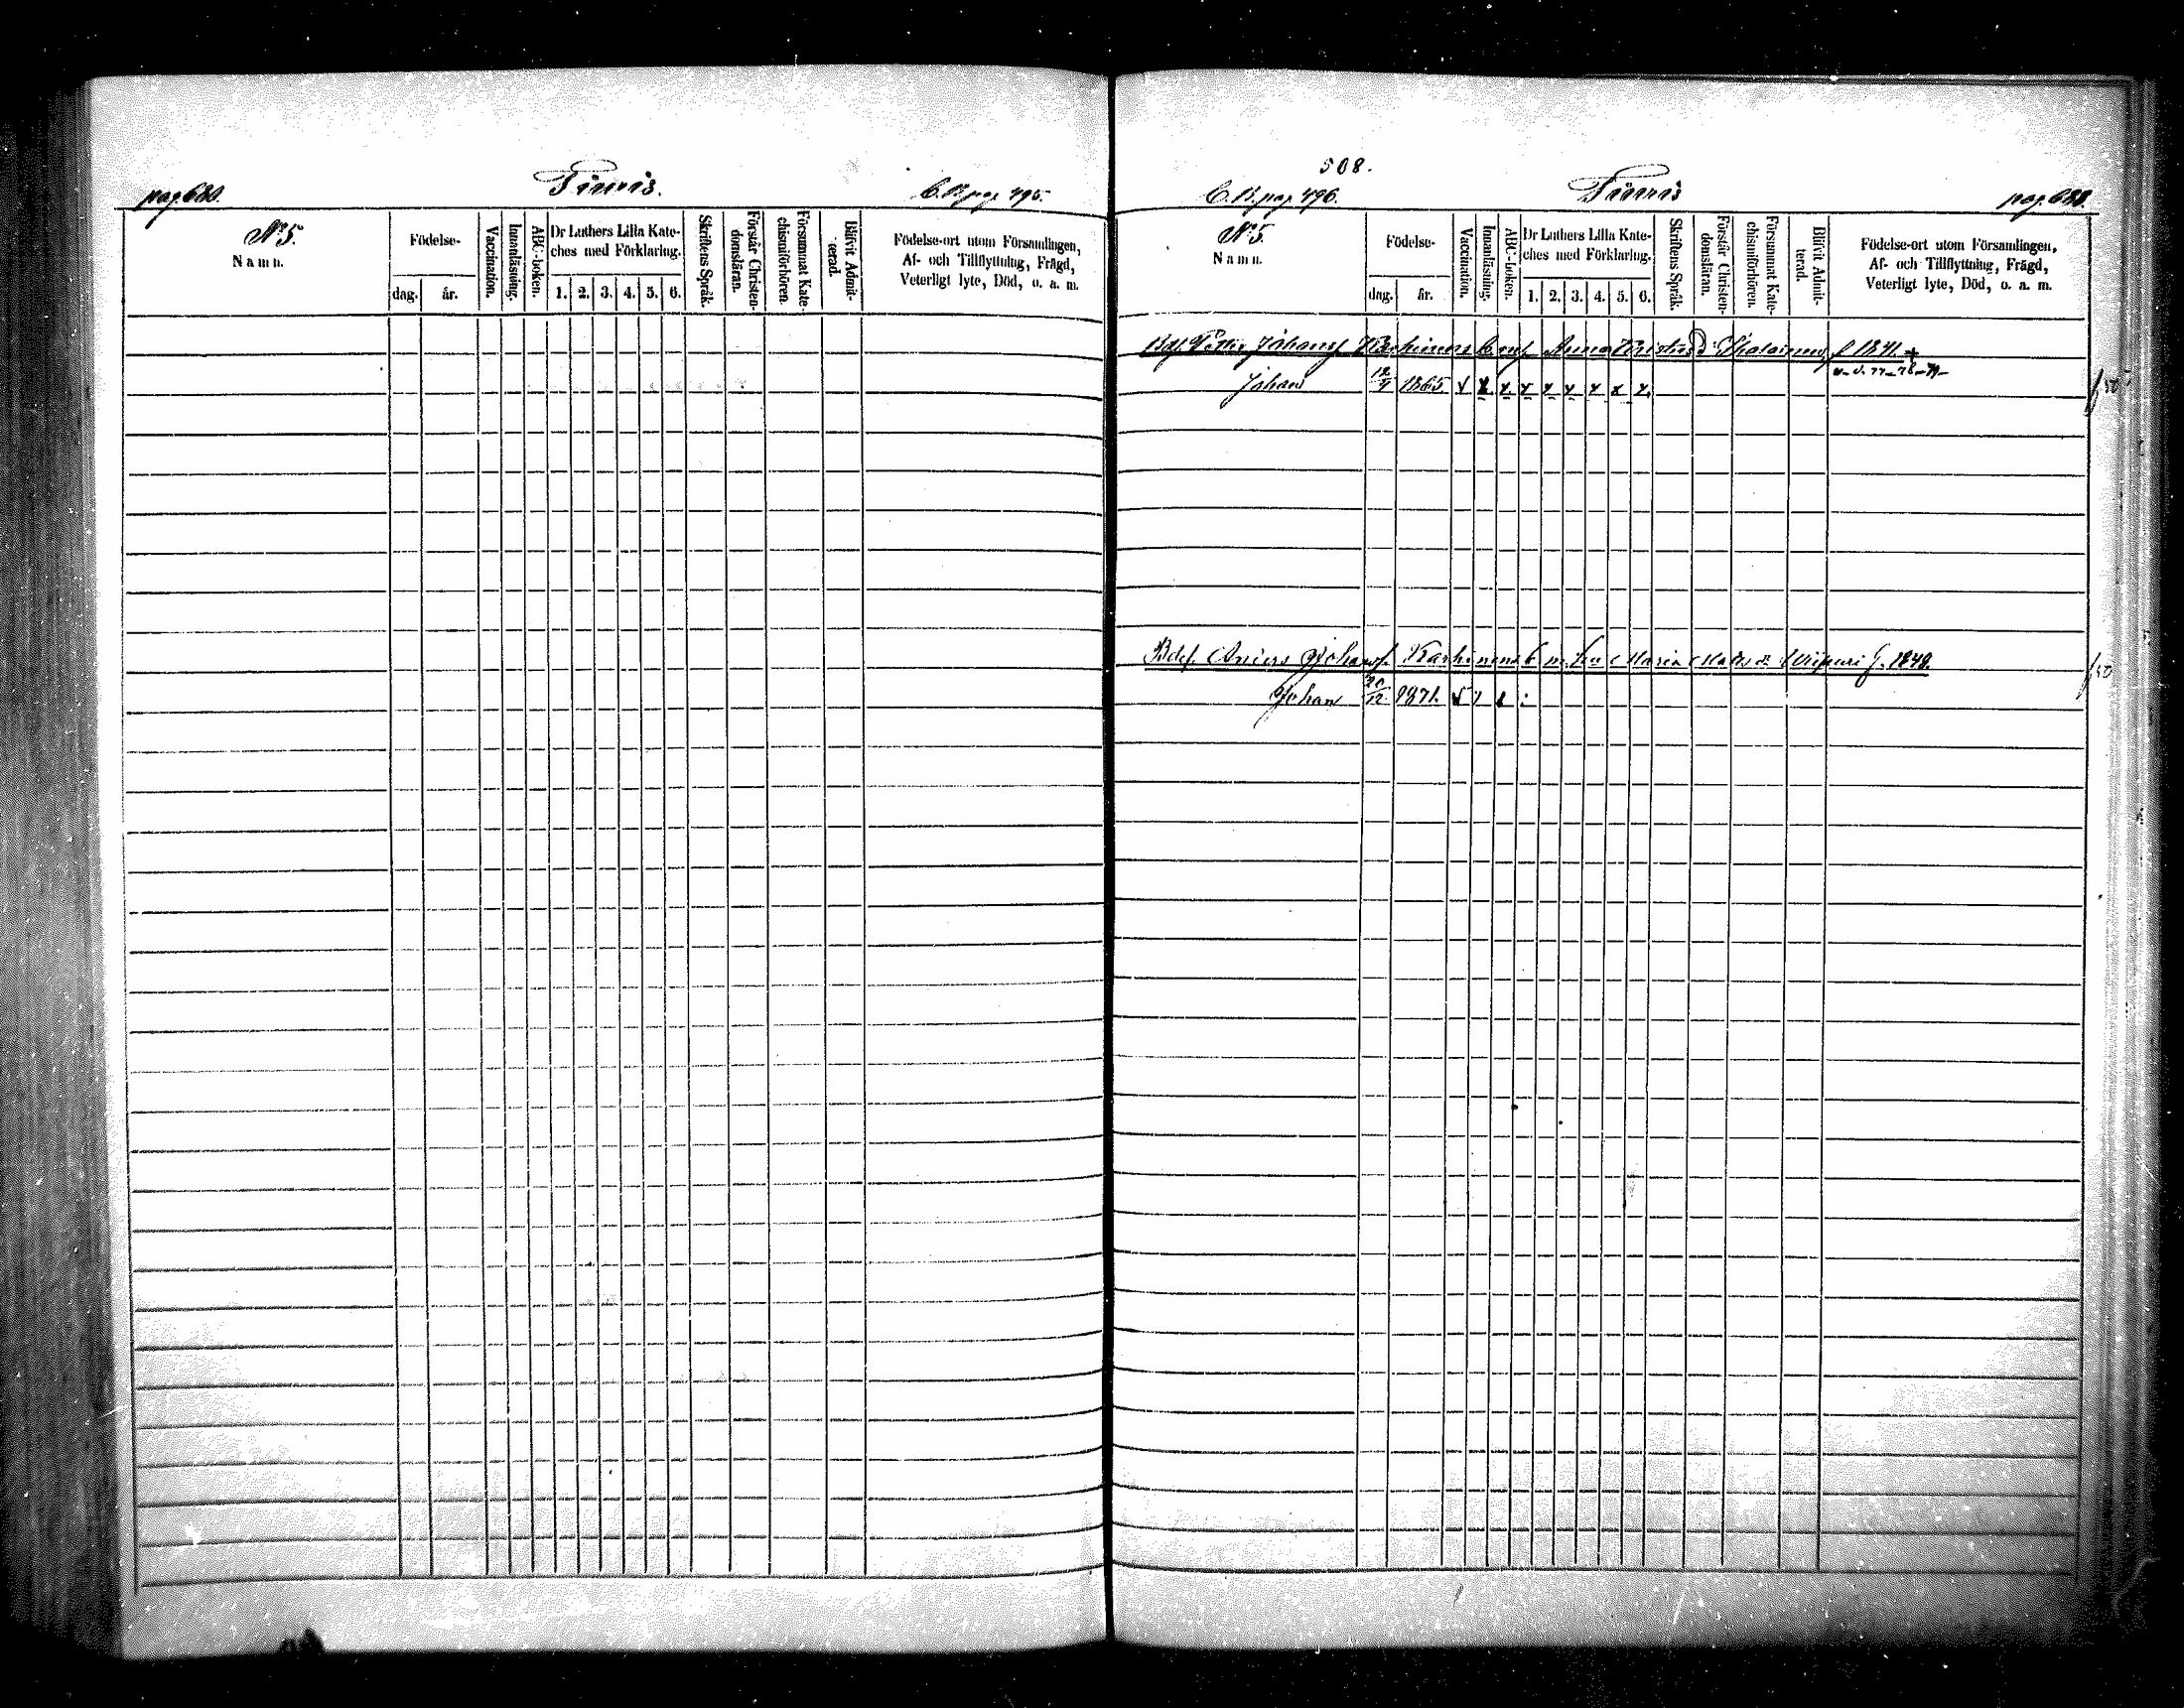 pag. 680. C.B. pag. 495.
No 5.
Namn.
Födelse-
dag. år.
Vaccination.
Innanläsning.
ABC-boken.
Dr Luthers Lilla Kate-
ches med Förklaring.
1. 2. 3. 4. 5. 6.
Skriftens Språk.
Förstår Christen-
domsläran.
Försummat Kate-
chismiförhören.
Blifvit Admit-
terad.
Födelse-ort utom Församlingen,
Af- och Tillflyttning, Frägd,
Veterligt lyte, Död, o. a. m.
508.
C.B. pag. 496. pag. 680.
No 5.
Namn.
Födelse-
dag. år.
Vaccination.
Innanläsning.
ABC-boken.
Dr Luthers Lilla Kate-
ches med Förklaring.
1. 2. 3. 4. 5. 6.
Skriftens Språk.
Förstår Christen-
domsläran.
Försummat Kate-
chismiförhören.
Blifvit Admit-
terad.
Födelse-ort utom Församlingen,
Af- och Tillflyttning, Frägd,
Veterligt lyte, Död, o. a. m.
Johans. Anna f. 1841
Johan 12/9 1865 x x x x x x x x x
Bdes. Anders Johans. Karhinens Maria f. 1848.
Johan 1871.